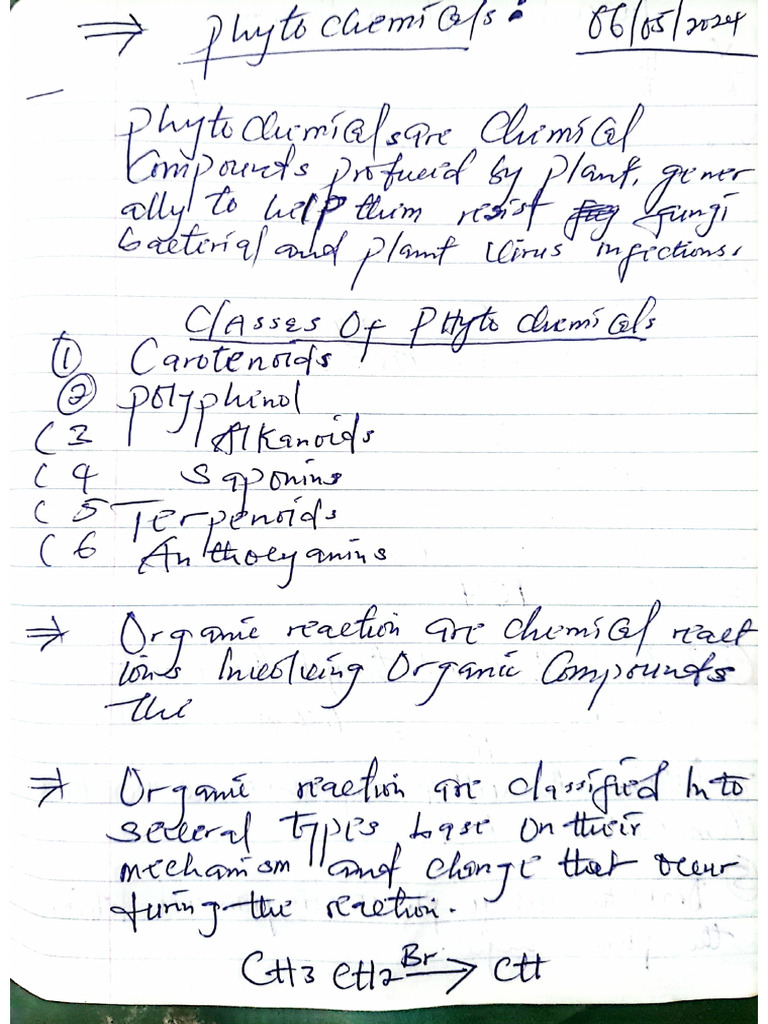 ⇒ Phytochemicals: 06/05/2024
Phytochemicals are Chemical
Compounds produced by plant, gener
ally to help them resist fungi
bacterial and plant virus infections.
Classes Of Phytochemicals
① Carotenoids
② Polyphenol
(3 Alkanoids
(4 Saponins
(5 Terpenoids
(6 Anthocyanins
⇒ Organic reaction are chemical react
ions Involving Organic Compounds
The
⇒ Organic reaction are classified Into
several types base on their
mechanism and change that occur
during the reaction.
CH3 CH2 Br→ CH